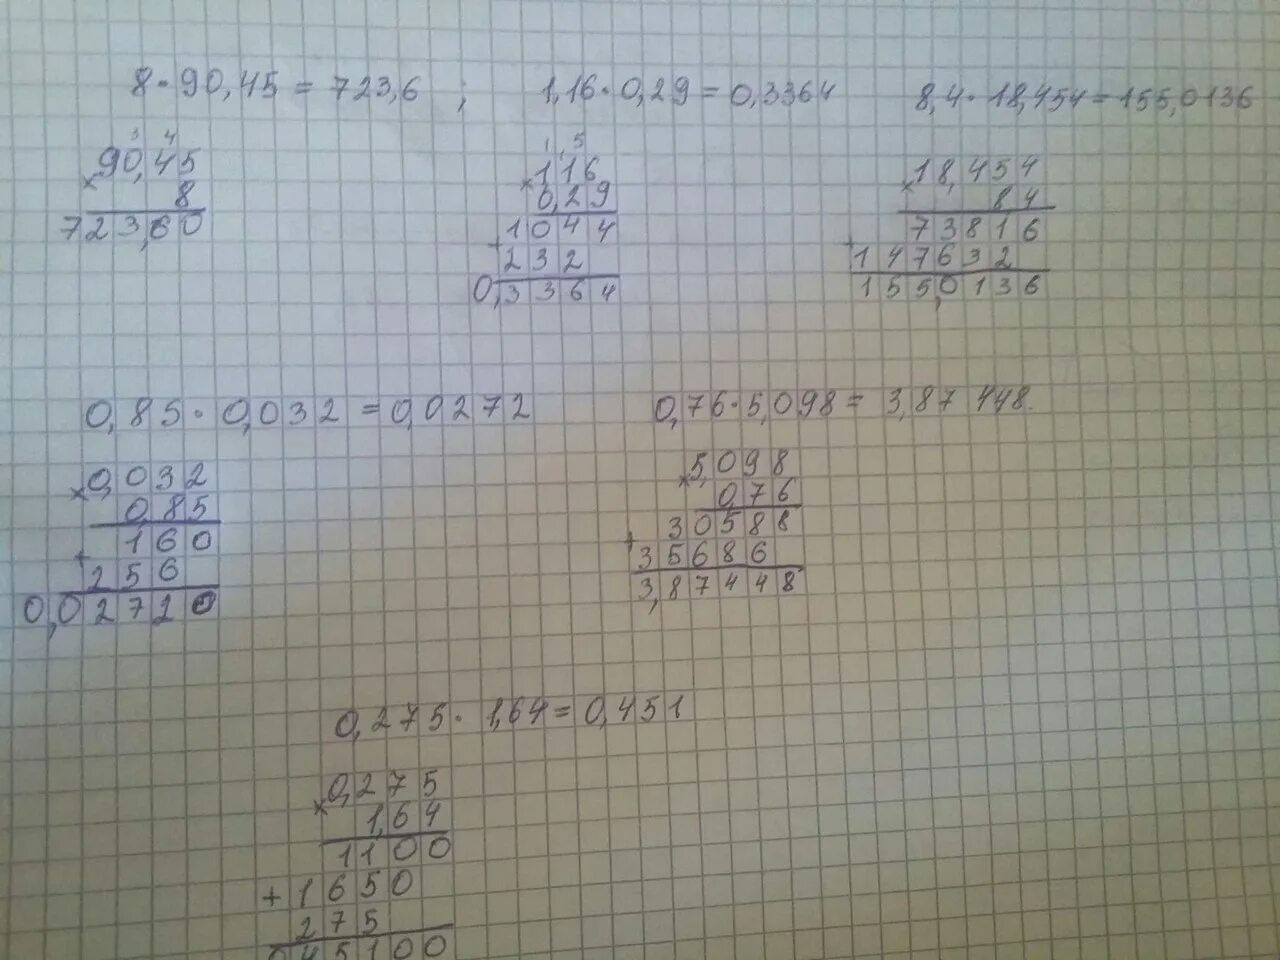 8·90,45=723,6 ; 1,16·0,29=0,3364 8,4·18,454=155,0136
3 4
×90,45
8
723,60
1,5
×116
0,29
1044
+232
0,3364
×18,454
84
73816
+147632
155,0136
0,85·0,032=0,0272 0,76·5,098=3,87448.
×0,032
0,85
160
+256
0,02720
×5,098
0,76
30588
+35686
3,87448
0,275·1,64=0,451
×0,275
1,64
1100
+1650
275
045100